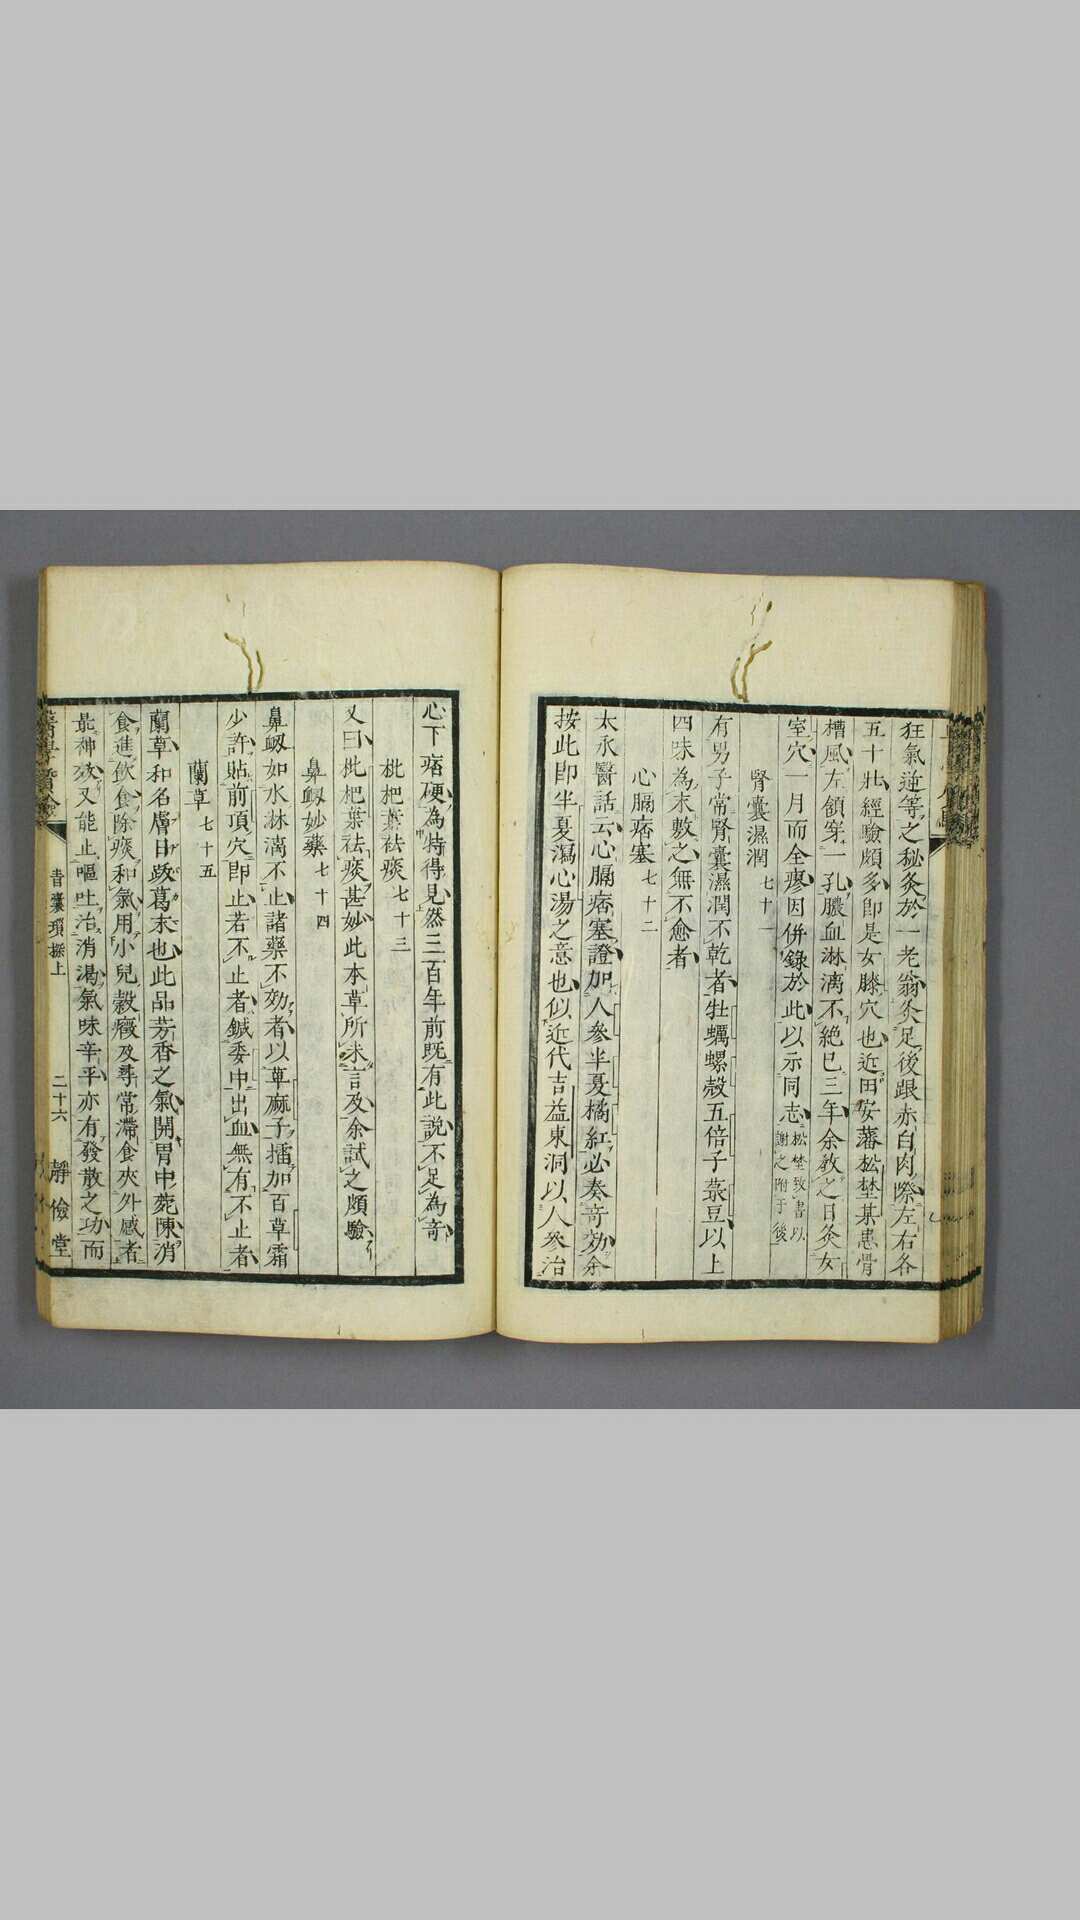 狂氣逆等之秘灸於一老翁灸足後跟赤白肉際左右各
五十壯經驗頗多即是女膝穴也近田安藩松埜某患骨
槽風左頷穿一孔膿血淋漓不絕已三年余教之日灸女
室穴一月而全瘳因併錄於此以示同志松埜致書以謝之附于後
腎囊濕潤七十一
有男子常腎囊濕潤不乾者牡蠣螺殼五倍子菉豆以上
四味為末敷之無不愈者
心膈痞塞七十二
太永醫話云心膈痞塞證加人參半夏橘紅必奏奇効余
按此即半夏瀉心湯之意也似近代吉益東洞以人參治
心下痞硬為特得見然三百年前既有此說不足為奇
枇杷葉祛痰七十三
又曰枇杷葉祛痰甚妙此本草所未言及余試之頗驗
鼻衂妙藥七十四
鼻衂如水淋漓不止諸藥不効者以萆麻子擂加百草霜
少許貼前頂穴即止若不止者鍼委中出血無有不止者
蘭草七十五
蘭草和名膚日跂葛末也此品芳香之氣開胃中菀陳消
食進飲食除痰和氣用小兒穀癥及尋常滯食夾外感者
最神效又能止嘔吐治消渴氣味辛平亦有發散之功而
青囊瑣探上 二十六 靜儉堂